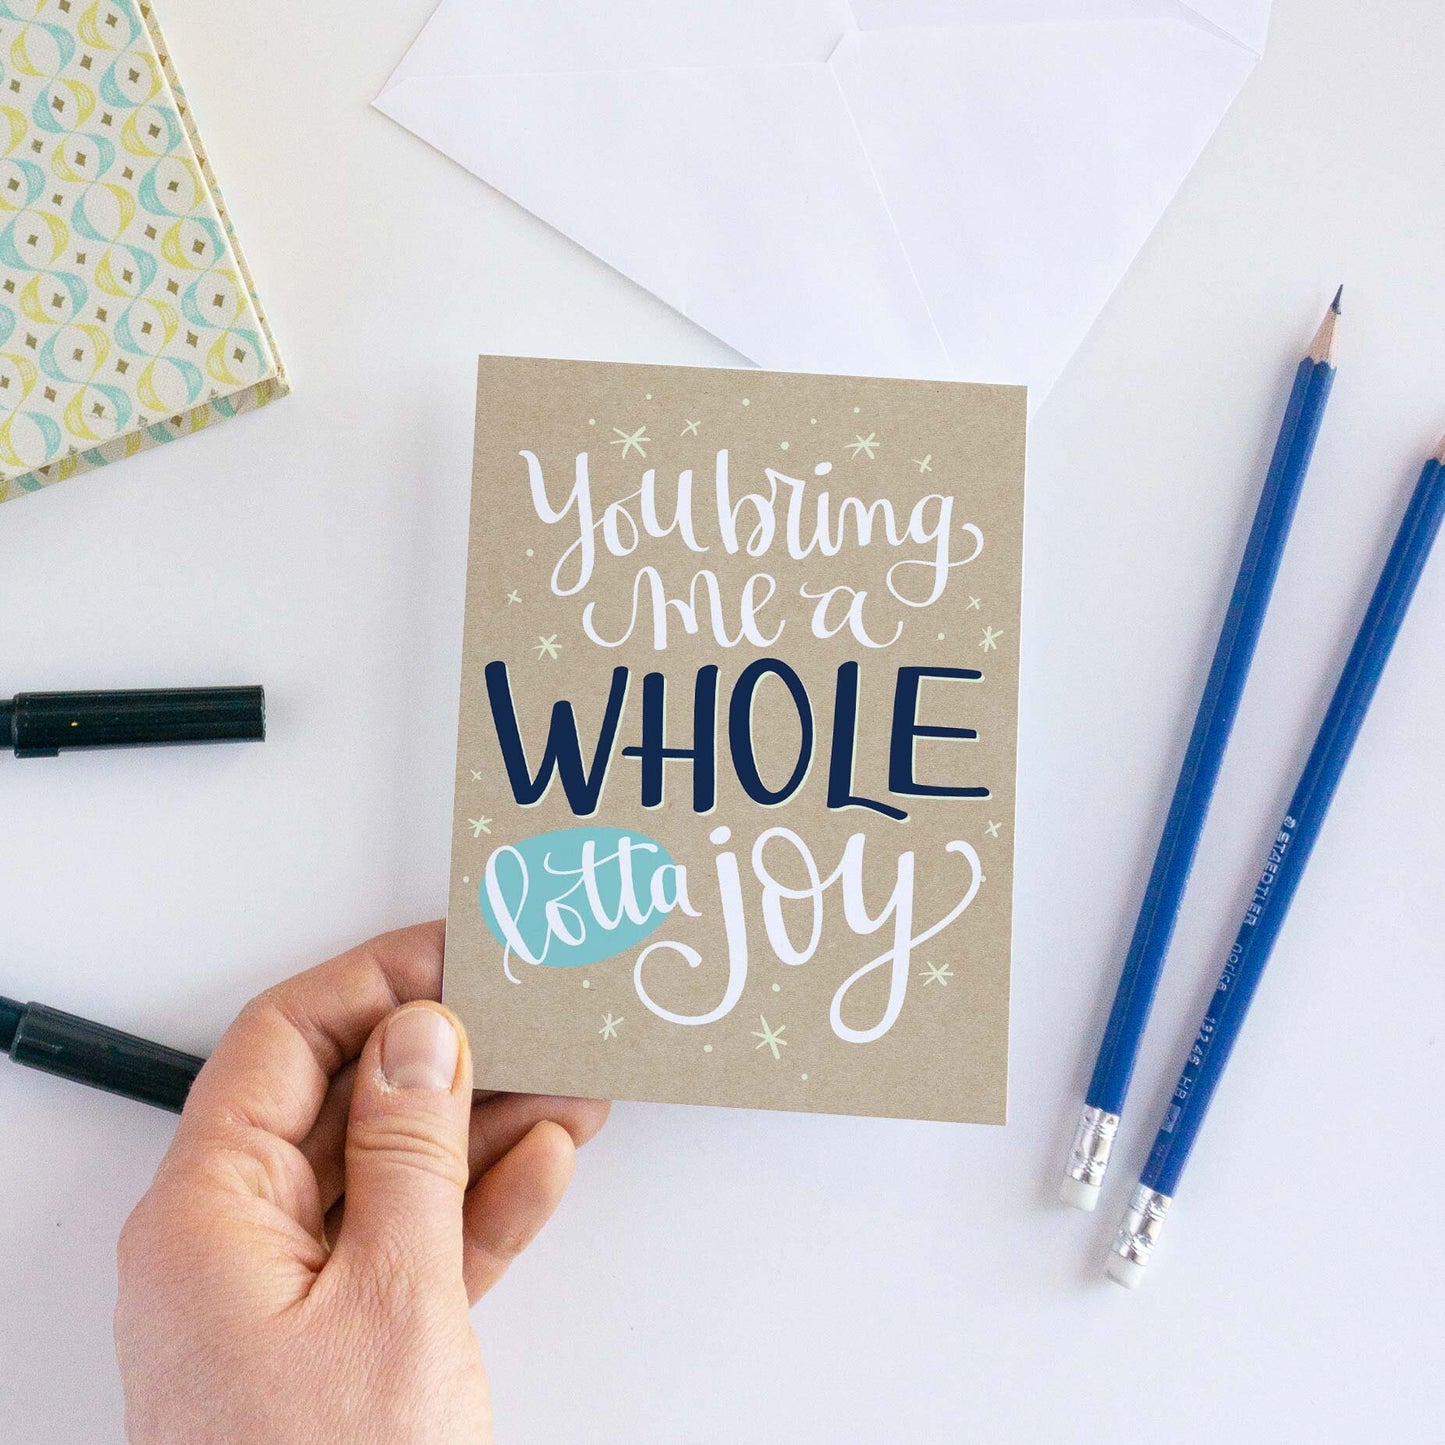 You bring
me a
WHOLE
lotta joy
STAEDTLER Norica 132 46 HB